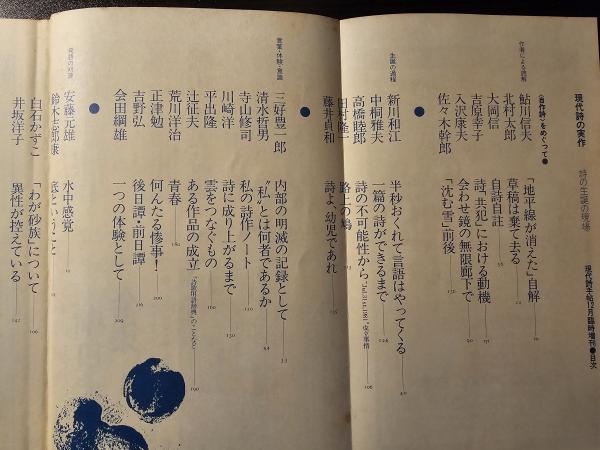 現代詩手帖12月臨時増刊●目次
現代詩の実作 詩の生誕の現場
〈自作詩〉をめぐって●
作者による読解
鮎川信夫 「地平線が消えた」自解
北村太郎 草稿は棄て去る
大岡信 自詩自註
吉原幸子 詩「共犯」における動機
入沢康夫 会わせ鏡の無限廊下で
佐々木幹郎 「沈む雪」前後
生誕の過程
●
新川和江 半秒おくれて言語はやってくる
中桐雅夫 一篇の詩ができるまで
高橋睦郎 詩の不可能性から
田村隆一 路上の鳩
藤井貞和 詩よ、幼児であれ
言葉・体験・意識
●
三好豊一郎 内部の明滅の記録として
清水哲男 “私”とは何者であるか
寺山修司 私の詩作ノート
川崎洋 詩に成り上がるまで
平出隆 雲をつなぐもの
辻征夫 ある作品の成立
荒川洋治 青春
正津勉 何んたる惨事!
吉野弘 後日譚・前日譚
会田綱雄 一つの体験として
●
安藤元雄 水中感覚
鈴木志郎康
白石かずこ 「わが砂族」について
井坂洋子 異性が控えている